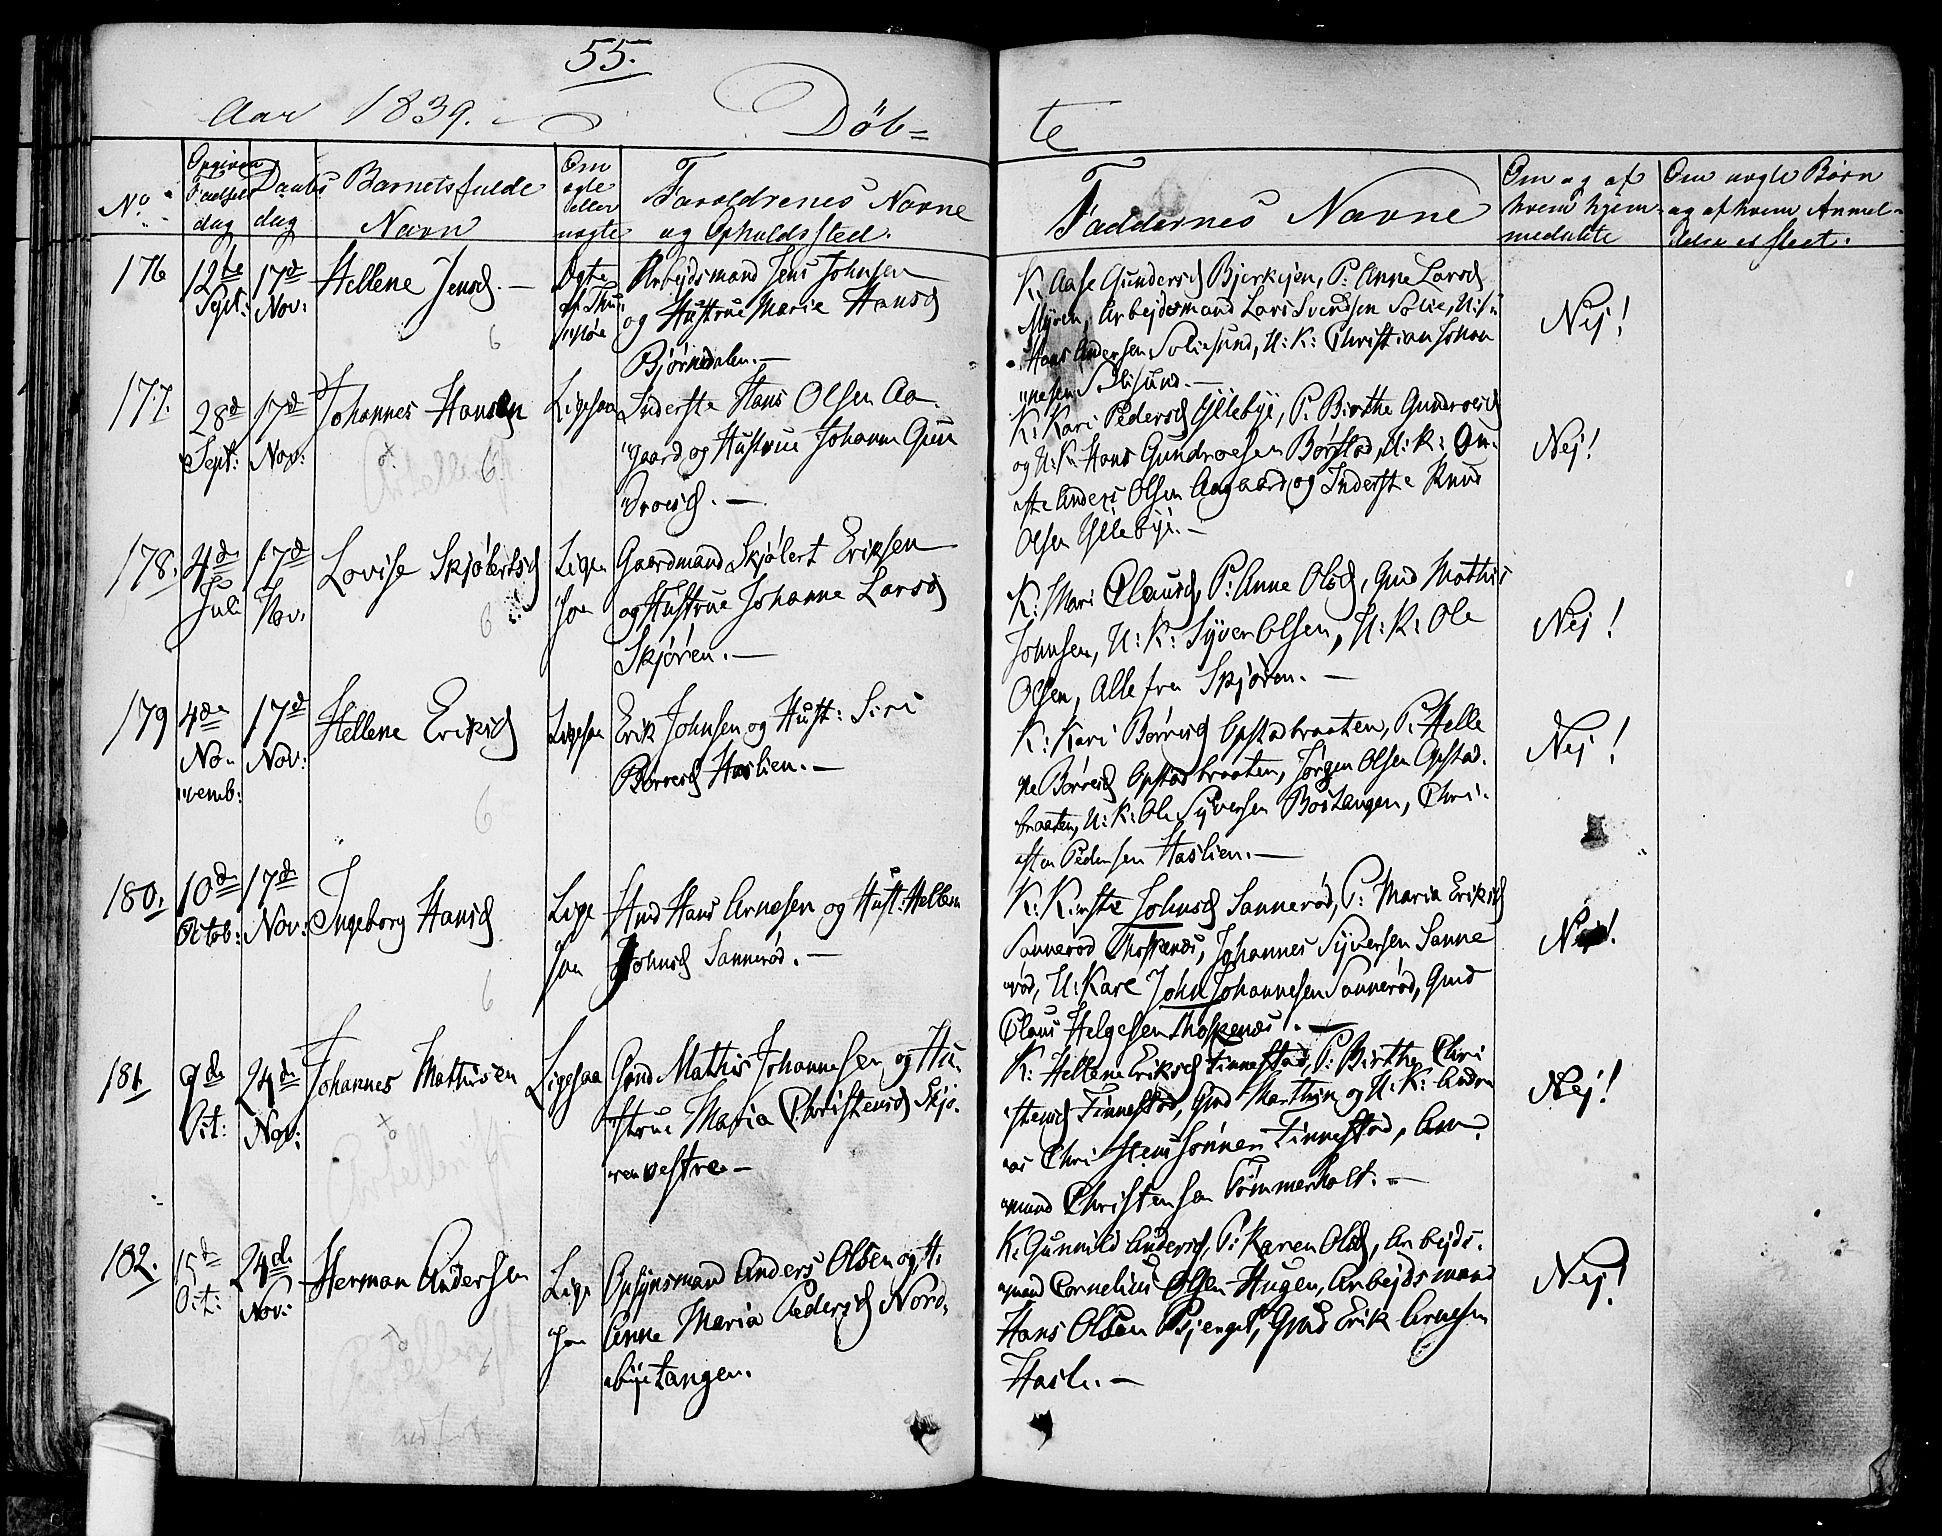 55.
Aar 1839. Döb=
te
No. Opgiven Fødsels dag
Daabs dag
Barnets fulde Navn
Om ægte eller uægte
Forældrenes Navne og Opholdssted.
Faddernes Navne
Om og af hvem hjemmedøbte
Om uægte Børn og af hvem Anmeldelse er skeet.
176 12te Sept: 17de Nov: Hellene Jensd. —
Ægte
Arbejdsmand Jens Johnsen
og Hustrue Marie Hansd
Bjørnedalen. —
K: Aase Gundersd Bjerkejen, P: Anne Larsd
Myren, Arbejdsmand Lars Svendsen Solie, U:
Hans Andersen Soliesund, U: K: Christian Johan
"nesen Soliesund. —
Nej!
177. 28de Sept: 17de Nov: Johannes Hansen
Ligesaa
Inderste Hans Olsen Aa
"gaard og Hustrue Johanne Gun
"droesd. —
K: Kari Pedersd Yllebye, P: Birthe Gundroesd
og U: K: Hans Gundroesen Børstad, U: K: En-
ste Anders Olsen Aagaard og Inderste Knud
Olsen Yllebye. —
Nej!
178. 4de Juli 17de Nov. Lovise Skjølertsd
Ligesaa
Gaardmand Skjølert Eriksen
og Hustrue Johanne Larsd
Skjøren. —
K: Mari Clausd, P: Anne Olsd, Gmd Mathis
Johnsen, U: K: Syver Olsen, U: K: Ole
Olsen, Alle fra Skjøren. —
Nej!
179 4de No-
"vemb: 17de Nov: Hellene Eriksd
Ligesaa
Erik Johnsen og Hust: Siri
Børresd Haslien. —
K: Kari Børresd Opstadbraaten, P: Helle
ne Børresd Opstadbraaten, Jørgen Olsen Opstad-
braaten, U: K: Ole Syversen Bostangen, Chri-
sten Pedersen Haslien. —
Nej!
180. 10de Octob: 17de Nov: Ingeborg Hansd
Ligesaa
Hmd Hans Arnesen og Hust: Hellene
Johnsd Sannerød. —
K: Kirsti Johnsd Sannerød, P: Maria Eriksd
Sannerød, Johannes Syversen Sanne
"rød, U: Kare John Johannesen Sannerød, Gmd
Claus Helgesen. —
Nej!
181. 9de Oct: 24de Nov: Johannes Mathisen
Ligesaa
Gmd Mathis Johannesen og Hu-
strue Maria Christensd Skjø-
"ren vestre —
K: Hellene Eriksd Finnestad, P: Birthe Chri
"stensd Finnestad, Gmd Marthin og U: K: Andre
"as Christensønner Finnestad, Am-
"mund Christensen Tømmerholt. —
Nej!
182. 15de Oct: 24de Nov: Herman Andersen
Ligesaa
Opsynsmand Anders Olsen og H:
Anne Maria Pedersd Nord-
"byetangen.
K: Gunnild Andersd, P: Karen Olsd, Arbejds-
"mand Cornelius Olsen Haugen, Arbejdsmand
Hans Olsen, Gmd Erik Arnesen
Hasle. —
Nej!